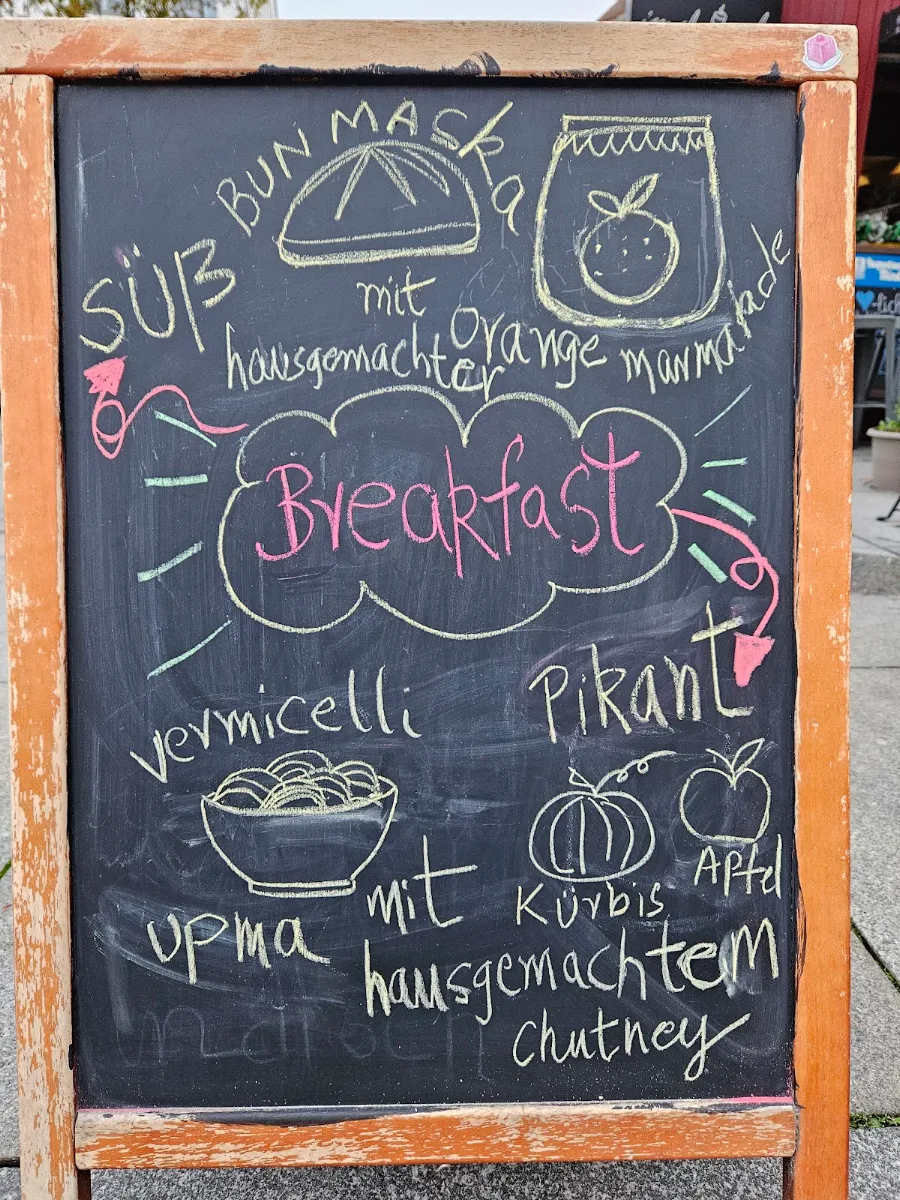 BUN MASka
SÜß
mit
hausgemachter Orange marmalade
Breakfast
Pikant
vermicelli
upma
mit
Kürbis
Apfel
hausgemachtem
chutney